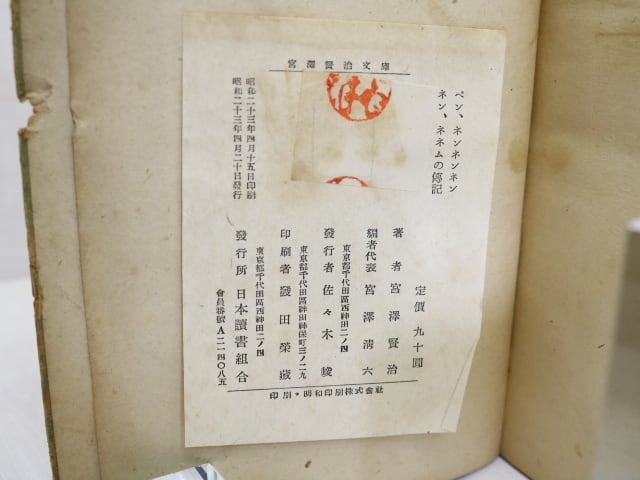 宮澤賢治文庫
ペン、ネンネンネン
ネン、ネネムの傳記
定價 九十圓
著者 宮澤賢治
編者代表 宮澤淸六
東京都千代田區西神田二ノ四
發行者 佐々木 峻
東京都千代田區神田神保町三ノ二九
印刷者 發田榮藏
東京都千代田區西神田二ノ四
發行所 日本讀書組合
會員番號A二一四〇八五
昭和二十三年四月十五日印刷
昭和二十三年四月二十日發行
印刷・明和印刷株式會社